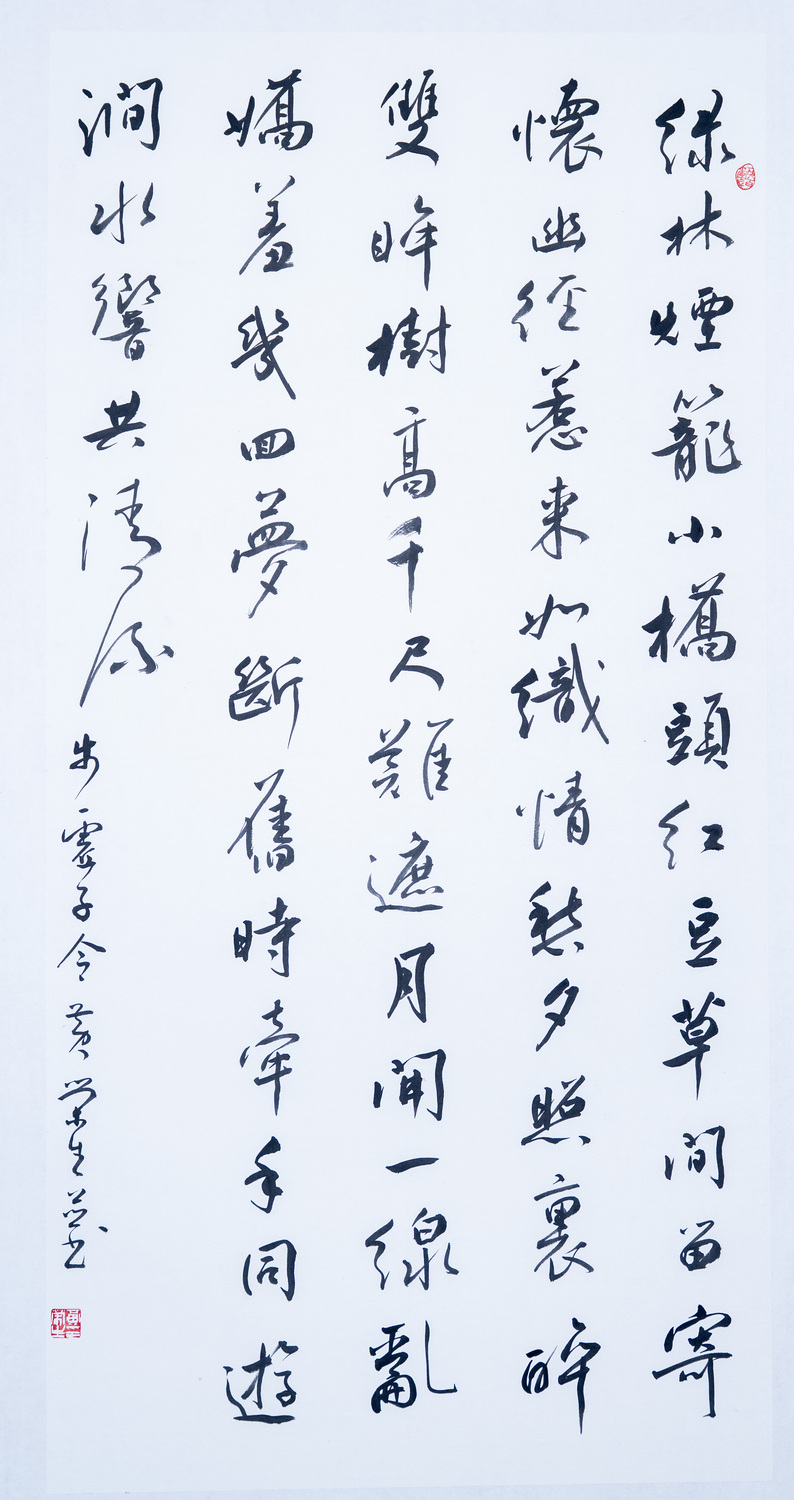 綠林煙籠小橋頭紅豆草間留寄
懷幽徑惹來如織情愁夕照裏醉
雙眸樹高千尺難遮月開一線亂
嬌羞幾囬夢斷舊時牽手同遊
澗水響共清流 步虛子令 黃榮生並書